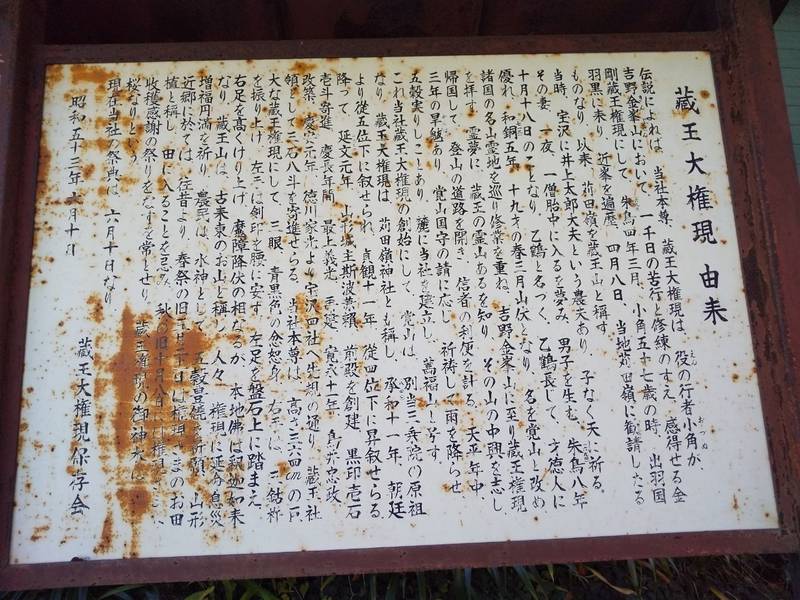 蔵王大権現 由来
伝説によれば、当社本尊、蔵王大権現は、役の行者小角が、
えん おつぬ
吉野金峯山において、一千日の苦行と修練のすえ、感得せる金
剛蔵王権現にして、朱鳥四年三月、小角五十七歳の時、出羽国
羽黒に来り、近峯を遍歴、四月八日、当地苅田嶺に勧請したる
ものなり、以来、苅田嶺を蔵王山と称す。
当時、宝沢に井上太郎大夫という農夫あり、子なく天に祈る。
その妻、一夜、一僧胎中に入るを夢み、男子を生む。朱鳥八年
十月十八日のことなり、乙鶴と名づく、乙鶴長じて、才徳人に
優れ、和銅五年、十九才の春三月山伏となり、名を覚山と改め
諸国の名山霊地を巡り修業を重ね、吉野金峯山に至り蔵王権現
を拝す、霊夢に、蔵王の霊山あるを知り、その山の中興を志し
帰国して、登山の道路を開き、信者の利便を計る、天平年中、
三年の旱魃あり、覚山国守の請に応じ、祈祷して雨を降らせ
五穀実りしことあり、麓に当社を建立し、萬福山と号す。
これ当社蔵王大権現の創始にして、覚山は、別当三乗院の原祖
なり、蔵王大権現は、苅田嶺神社とも称し、承和十一年、朝廷
より従五位下に叙せられ、貞観十一年、従四位下に昇叙せらる
降って、延文元年、山形城主斯波兼頼、前殿を創建、黒印壱石
壱斗寄進、慶長年間、最上義光、再建、寛永十一年、鳥居忠政
改築、慶安元年、徳川家光より宝沢四社へ先規の通り、蔵王社
領として三石八斗を寄進せらる、当社本尊は、高さ三六四㎝の巨
大な蔵王権現にして、三眼、青黒色の忿怒身、右手は、三鈷杵
を振り上げ、左手は剣印を腰に安す、左足を盤石上に踏まえ、
右足を高くけり上げ、魔障降伏の相なるが、本地佛は釈迦如来
なり、蔵王山は、古来東のお山と称し、人々、権現に延命息災
増福円満を祈り、農民は、水神として、五穀豊穣を祈願、山形
近郷に於ては、往昔より、春祭の旧 は権現さまのお田
植と称し、田に入ることを忌み、秋の旧十月八日は権現
収穫感謝の祭りをなすを常とせり、蔵王権現の御神木は
桜なりという。
現在当社の祭典は、六月十日なり
昭和五十三年六月十日
蔵王大権現保存会